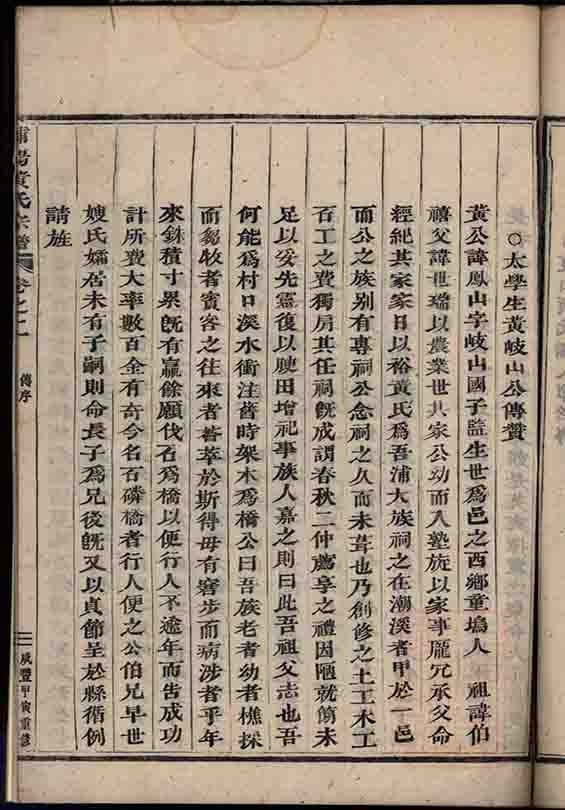 ○太學生黃岐山公傳贊
黃公諱鳳山字岐山國子監生世爲邑之西鄉童塢人 祖諱伯
禧父諱世瑞以農業世其家公幼而入塾旋以家事龎冗承父命
經紀其家家日以裕黃氏爲吾浦大族祠之在潮溪者甲於一邑
而公之族別有專祠公念祠之久而未葺也乃創修之土工木工
百工之費獨房其任祠旣成謂春秋二仲薦享之禮因陋就簡未
足以妥先靈復以腴田增祀事族人嘉之則曰此吾祖父志也吾
何能爲村口溪水衝注舊時架木爲橋公曰吾族老者幼者樵採
而芻牧者賓客之往來者薈萃於斯得毋有窘步而病涉者乎年
來銖積寸累旣有贏餘願伐石爲橋以便行人不逾年而告成功
計所費大率數百金有奇今名百磷橋者行人便之公伯兄早世
嫂氏孀居未有子嗣則命長子爲兄後旣又以貞節呈於縣循例
請旌
浦陽黃氏宗譜 卷之二 傳序
咸豐甲寅重修